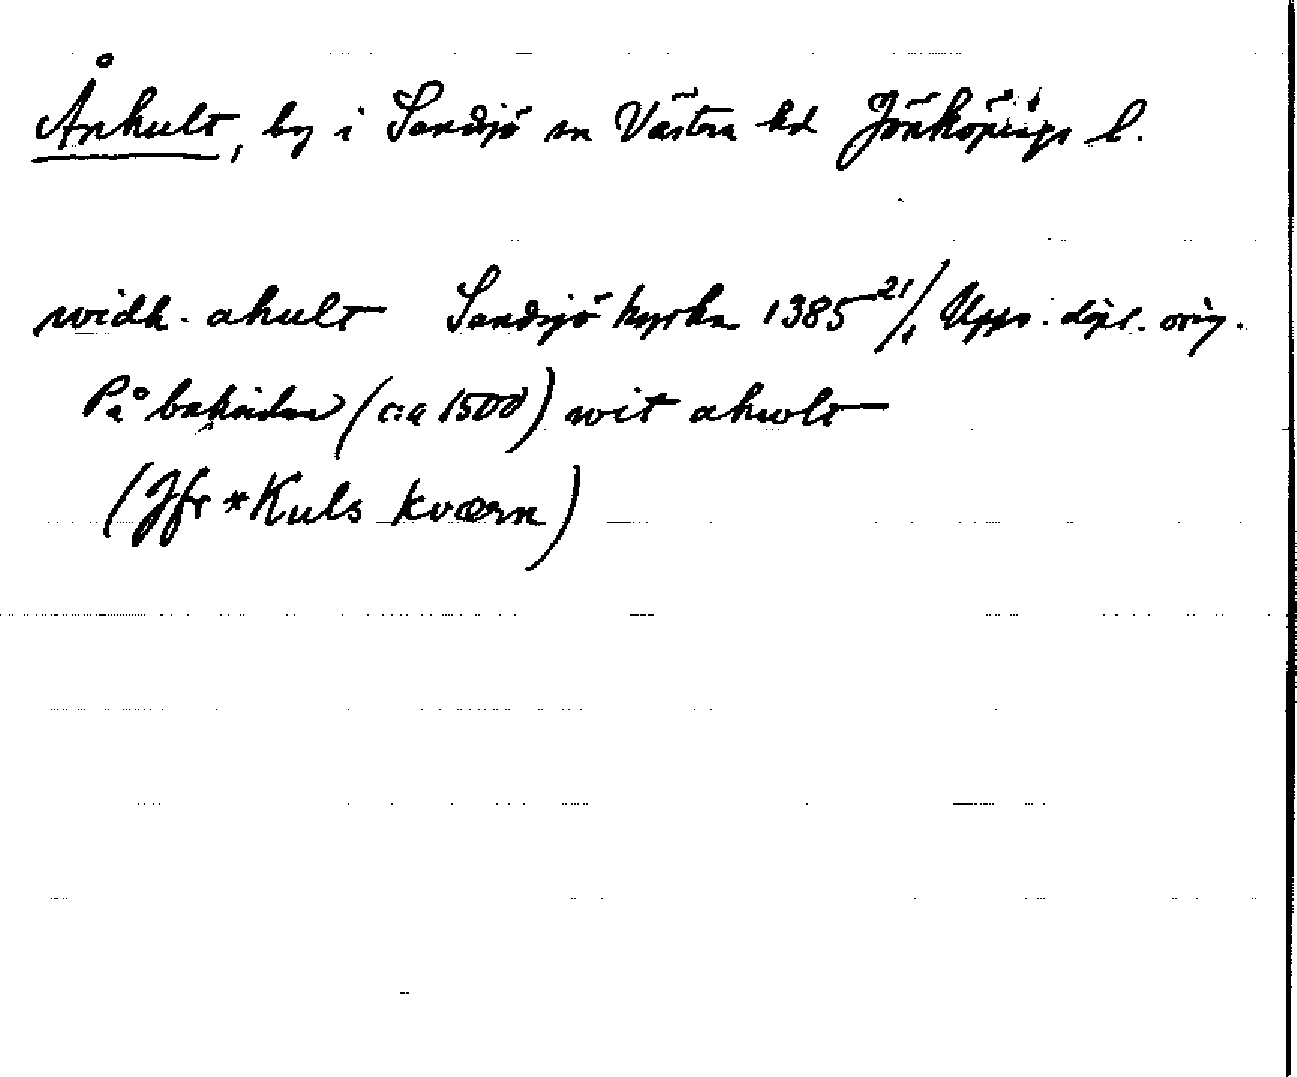 Århult, by i Sandsjö sn Västra hd Jönköpings l.
widh. ahult Sandsjö kyrka 1385 21/1 Upps. dipl. orig.
På baksidan (c:a 1500) wit ahwlt
(Jfr *Kuls kværn)